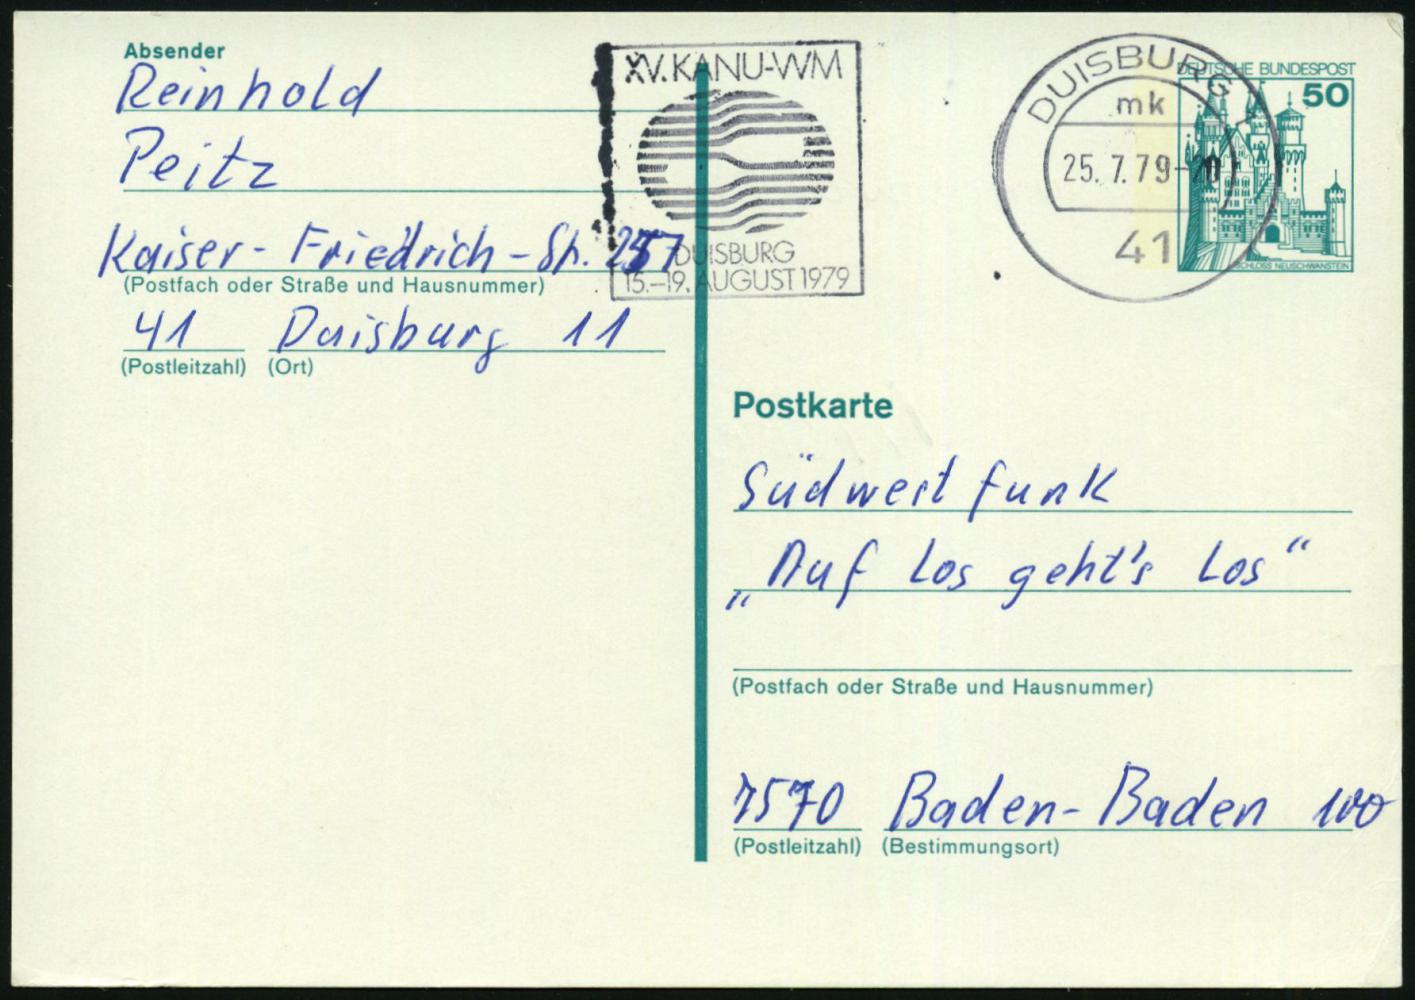 Absender
Reinhold
Peitz
Kaiser-Friedrich-Str.
(Postfach oder Straße und Hausnummer)
41 Duisburg 11
(Postleitzahl) (Ort)
XV. KANU-WM
DUISBURG
15.-19. AUGUST 1979
DUISBURG 1
mk
25.7.79-20
41
DEUTSCHE BUNDESPOST
50
SCHLOSS NEUSCHWANSTEIN
Postkarte
Südwestfunk
„Auf Los geht's Los“
(Postfach oder Straße und Hausnummer)
7570 Baden-Baden 100
(Postleitzahl) (Bestimmungsort)